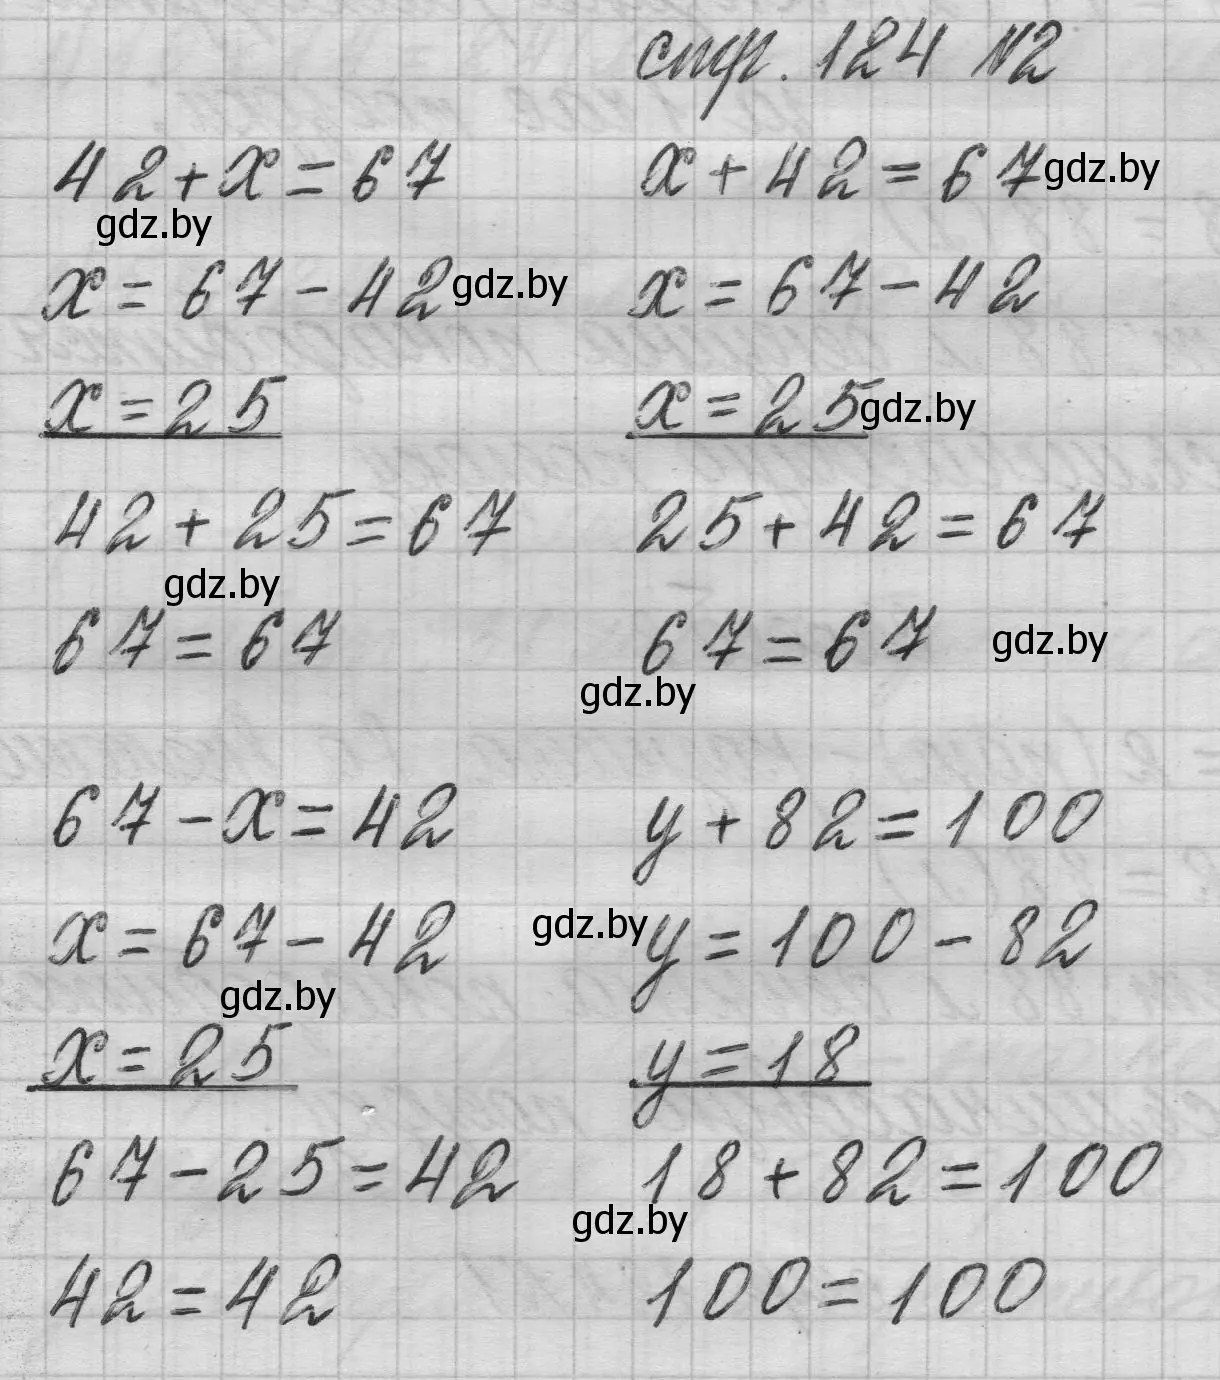 стр. 124 №2
42+x=67
x=67-42
x=25
42+25=67
67=67
x+42=67
x=67-42
x=25
25+42=67
67=67
67-x=42
x=67-42
x=25
67-25=42
42=42
y+82=100
y=100-82
y=18
18+82=100
100=100
gdz.by
gdz.by
gdz.by
gdz.by
gdz.by
gdz.by
gdz.by
gdz.by
gdz.by
gdz.by